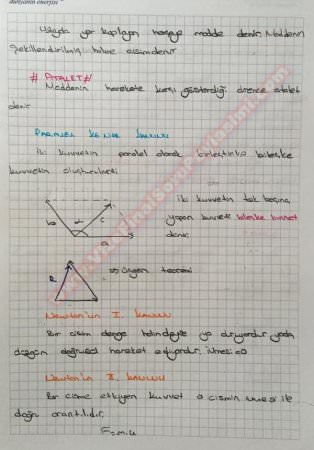 dünyanın enerjisi "
Uzayda yer kaplayan herşeye madde denir. Maddenin
şekillendirilmiş haline cisim denir.
# ATALET #
Maddenin harekete karşı gösterdiği dirence atalet
denir.
PARALEL KENAR KANUNU
İki kuvvetin paralel olarak birleştirilip bileşke
kuvvetin oluşturulması
b
c
a
İki kuvvetin tek başına
yapan kuvvete bileşke kuvvet
denir.
R
=> Üçgen teoremi
Newton'un I. KANUNU
Bir cisim denge halindeyse ya duruyordur yada
düzgün doğrusal hareket ediyordur. ivmesi = 0
Newton'un II. KANUNU
Bir cisme etkiyen kuvvet o cismin ivmesi ile
doğru orantılıdır.
F=m.a
www.VizeFinalSoruPaylasimi.com